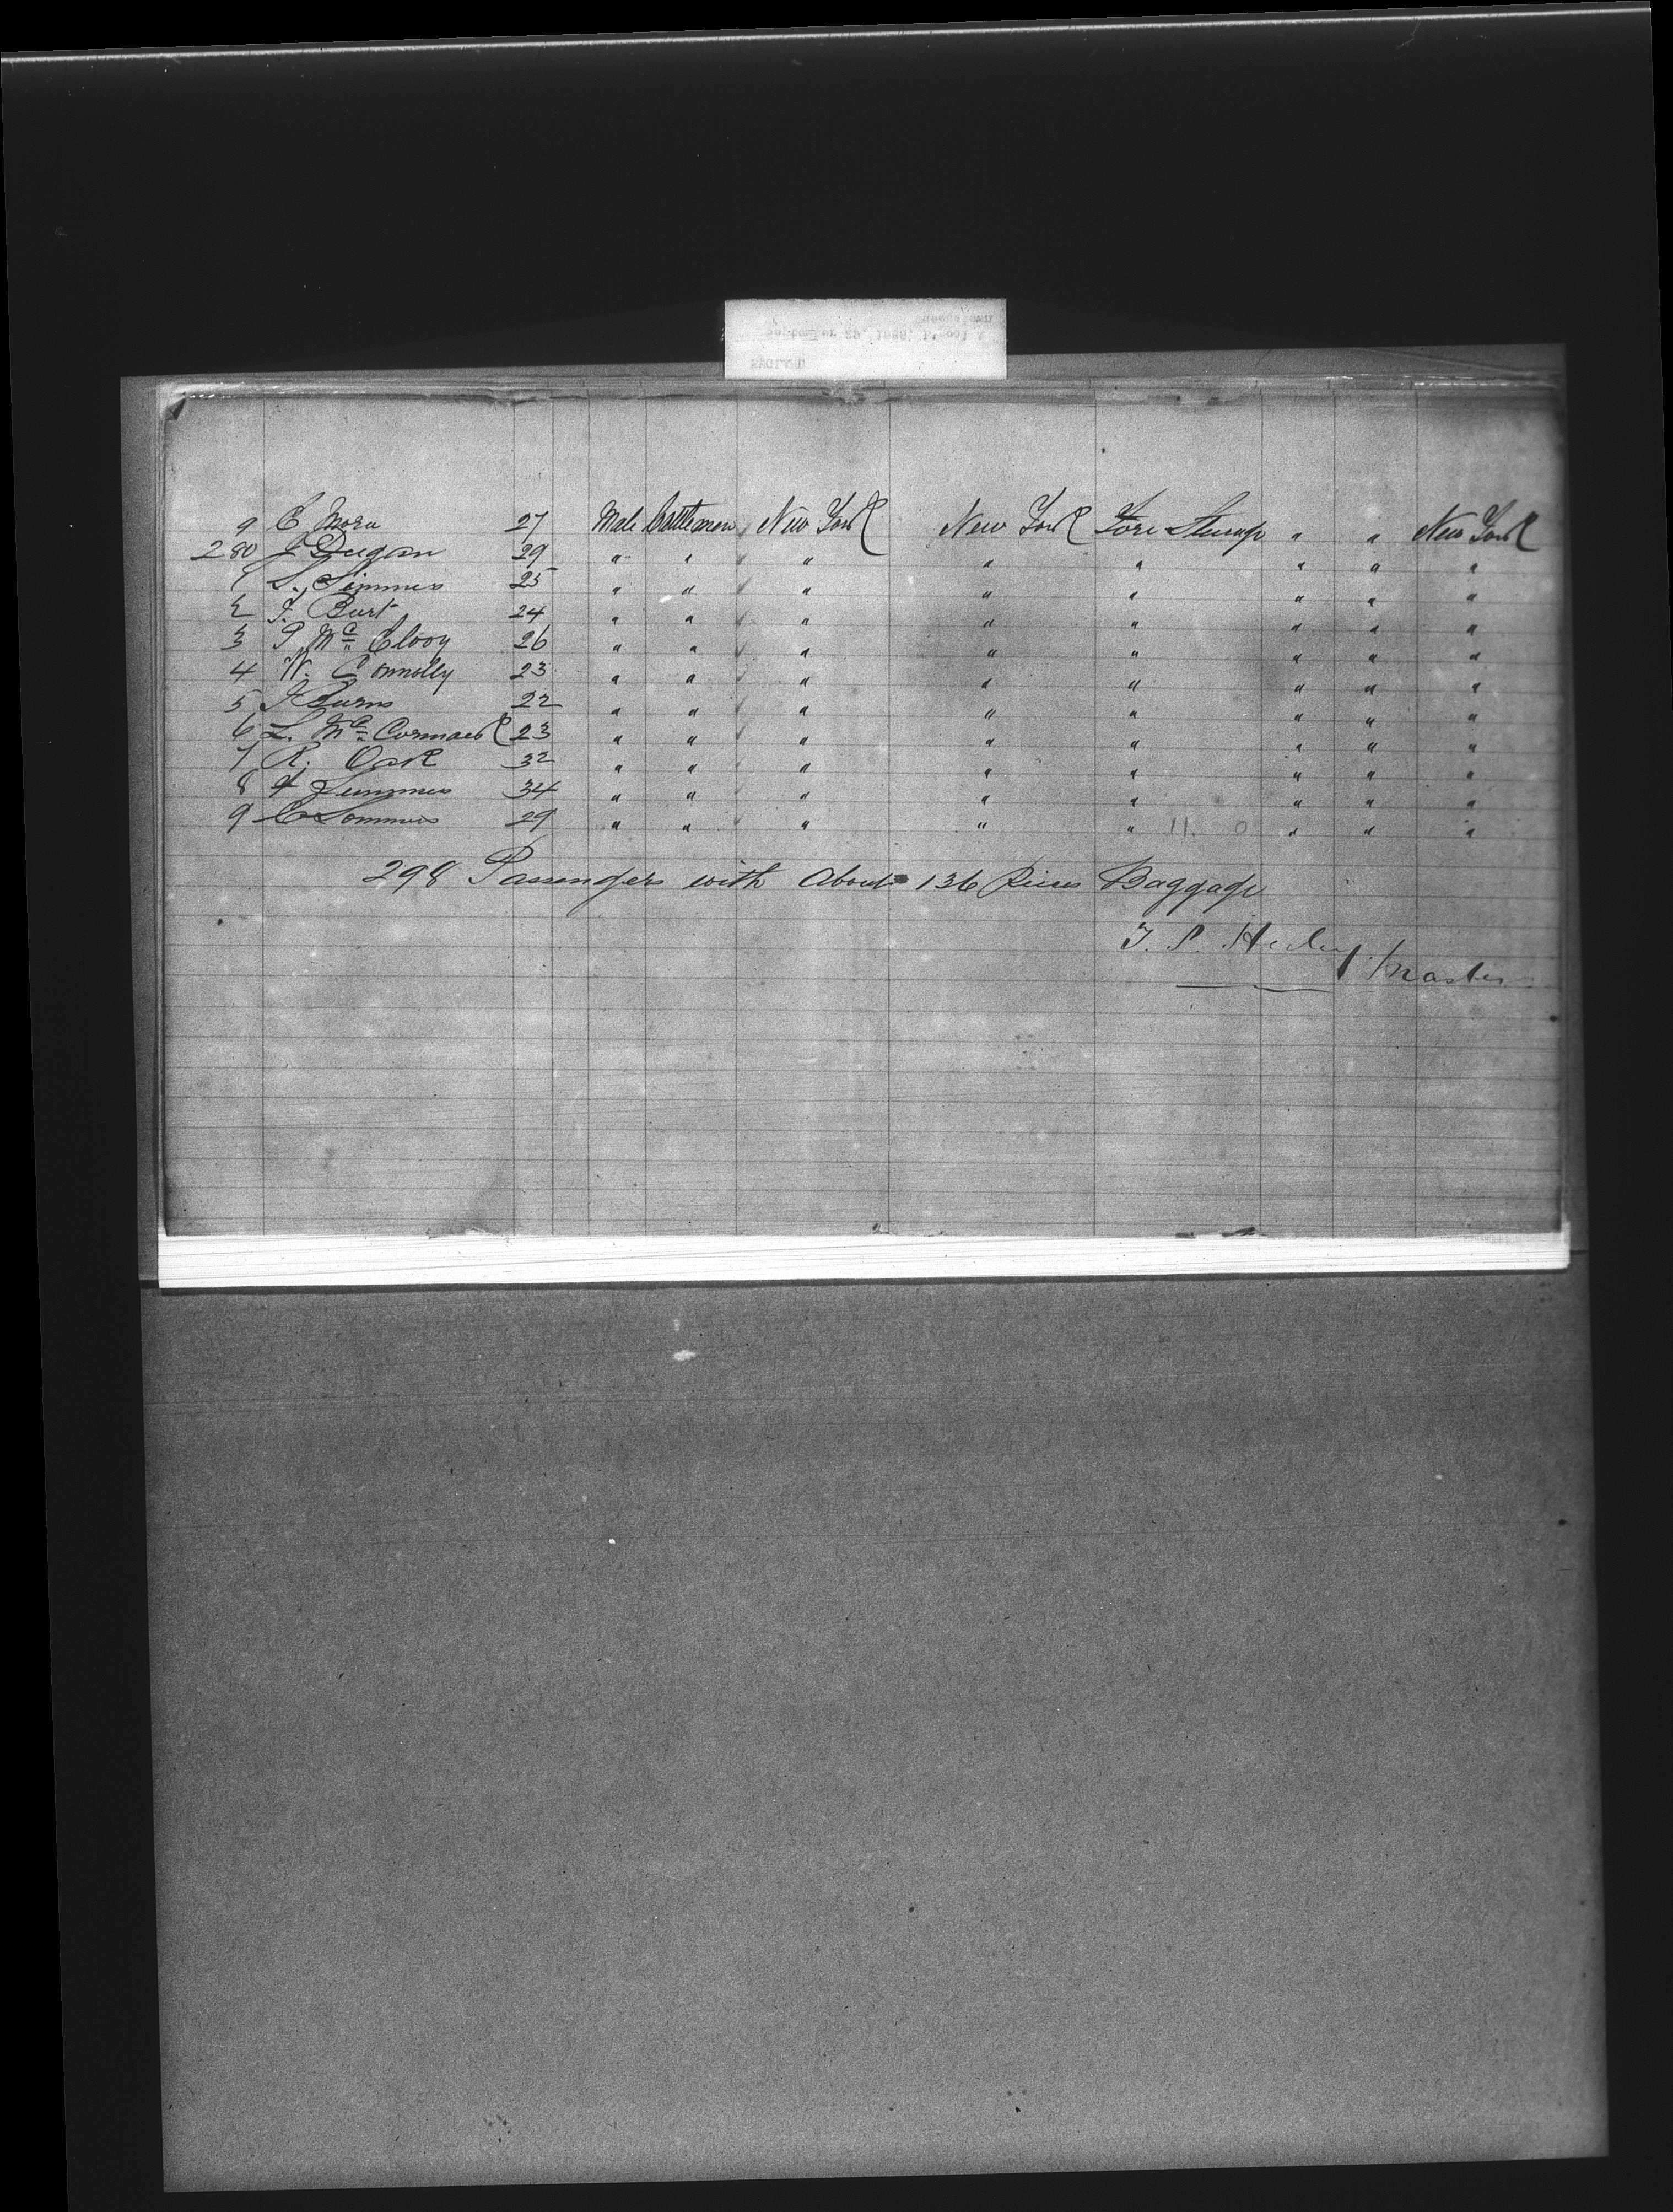 9 C Mora 27 Male Cattlemen New York New York Fore Steerage " " New York
280 J Dugan 29 " " " " " " " "
1 S. Simmes 25 " " " " " " " "
2 F. Burt 24 " " " " " " " "
3 P. Mc Clooy 26 " " " " " " " "
4 W. Connolly 23 " " " " " " " "
5 J Burns 22 " " " " " " " "
6 L. Mc Cormack 23 " " " " " " " "
7 R. Opik 32 " " " " " " " "
8 34 " " " " " " " "
9 C Sommers 29 " " " " " " " "
298 Passengers with About 136 Pieces Baggage
T. P. Heeley Master